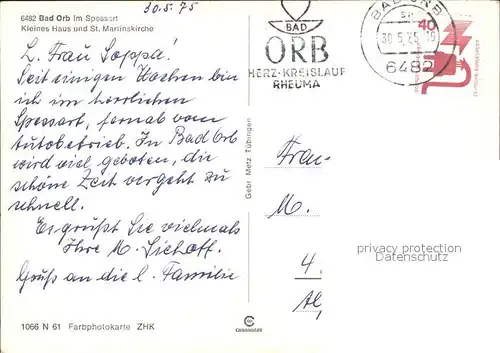 30.5.75
6482 Bad Orb im Spessart
Kleines Haus und St. Martinskirche
L. Frau Soppa!
Seit einigen Wochen bin
ich im herrlichen
Spessart, fernab vom
Autobetrieb. In Bad Orb
wird viel geboten, die
schöne Zeit vergeht zu
schnell.
Es grüßt Sie vielmals
Ihre M. Siehoff.
Gruß an die l. Familie
1066 N 61 Farbphotokarte ZHK
Gebr. Metz Tübingen
CEKADECOLOR
BAD
ORB
HERZ-KREISLAUF
RHEUMA
BAD ORB
30.5.75
6482
40
DEUTSCHE BUNDESPOST
Frau
M.
4
privacy protection
Datenschutz